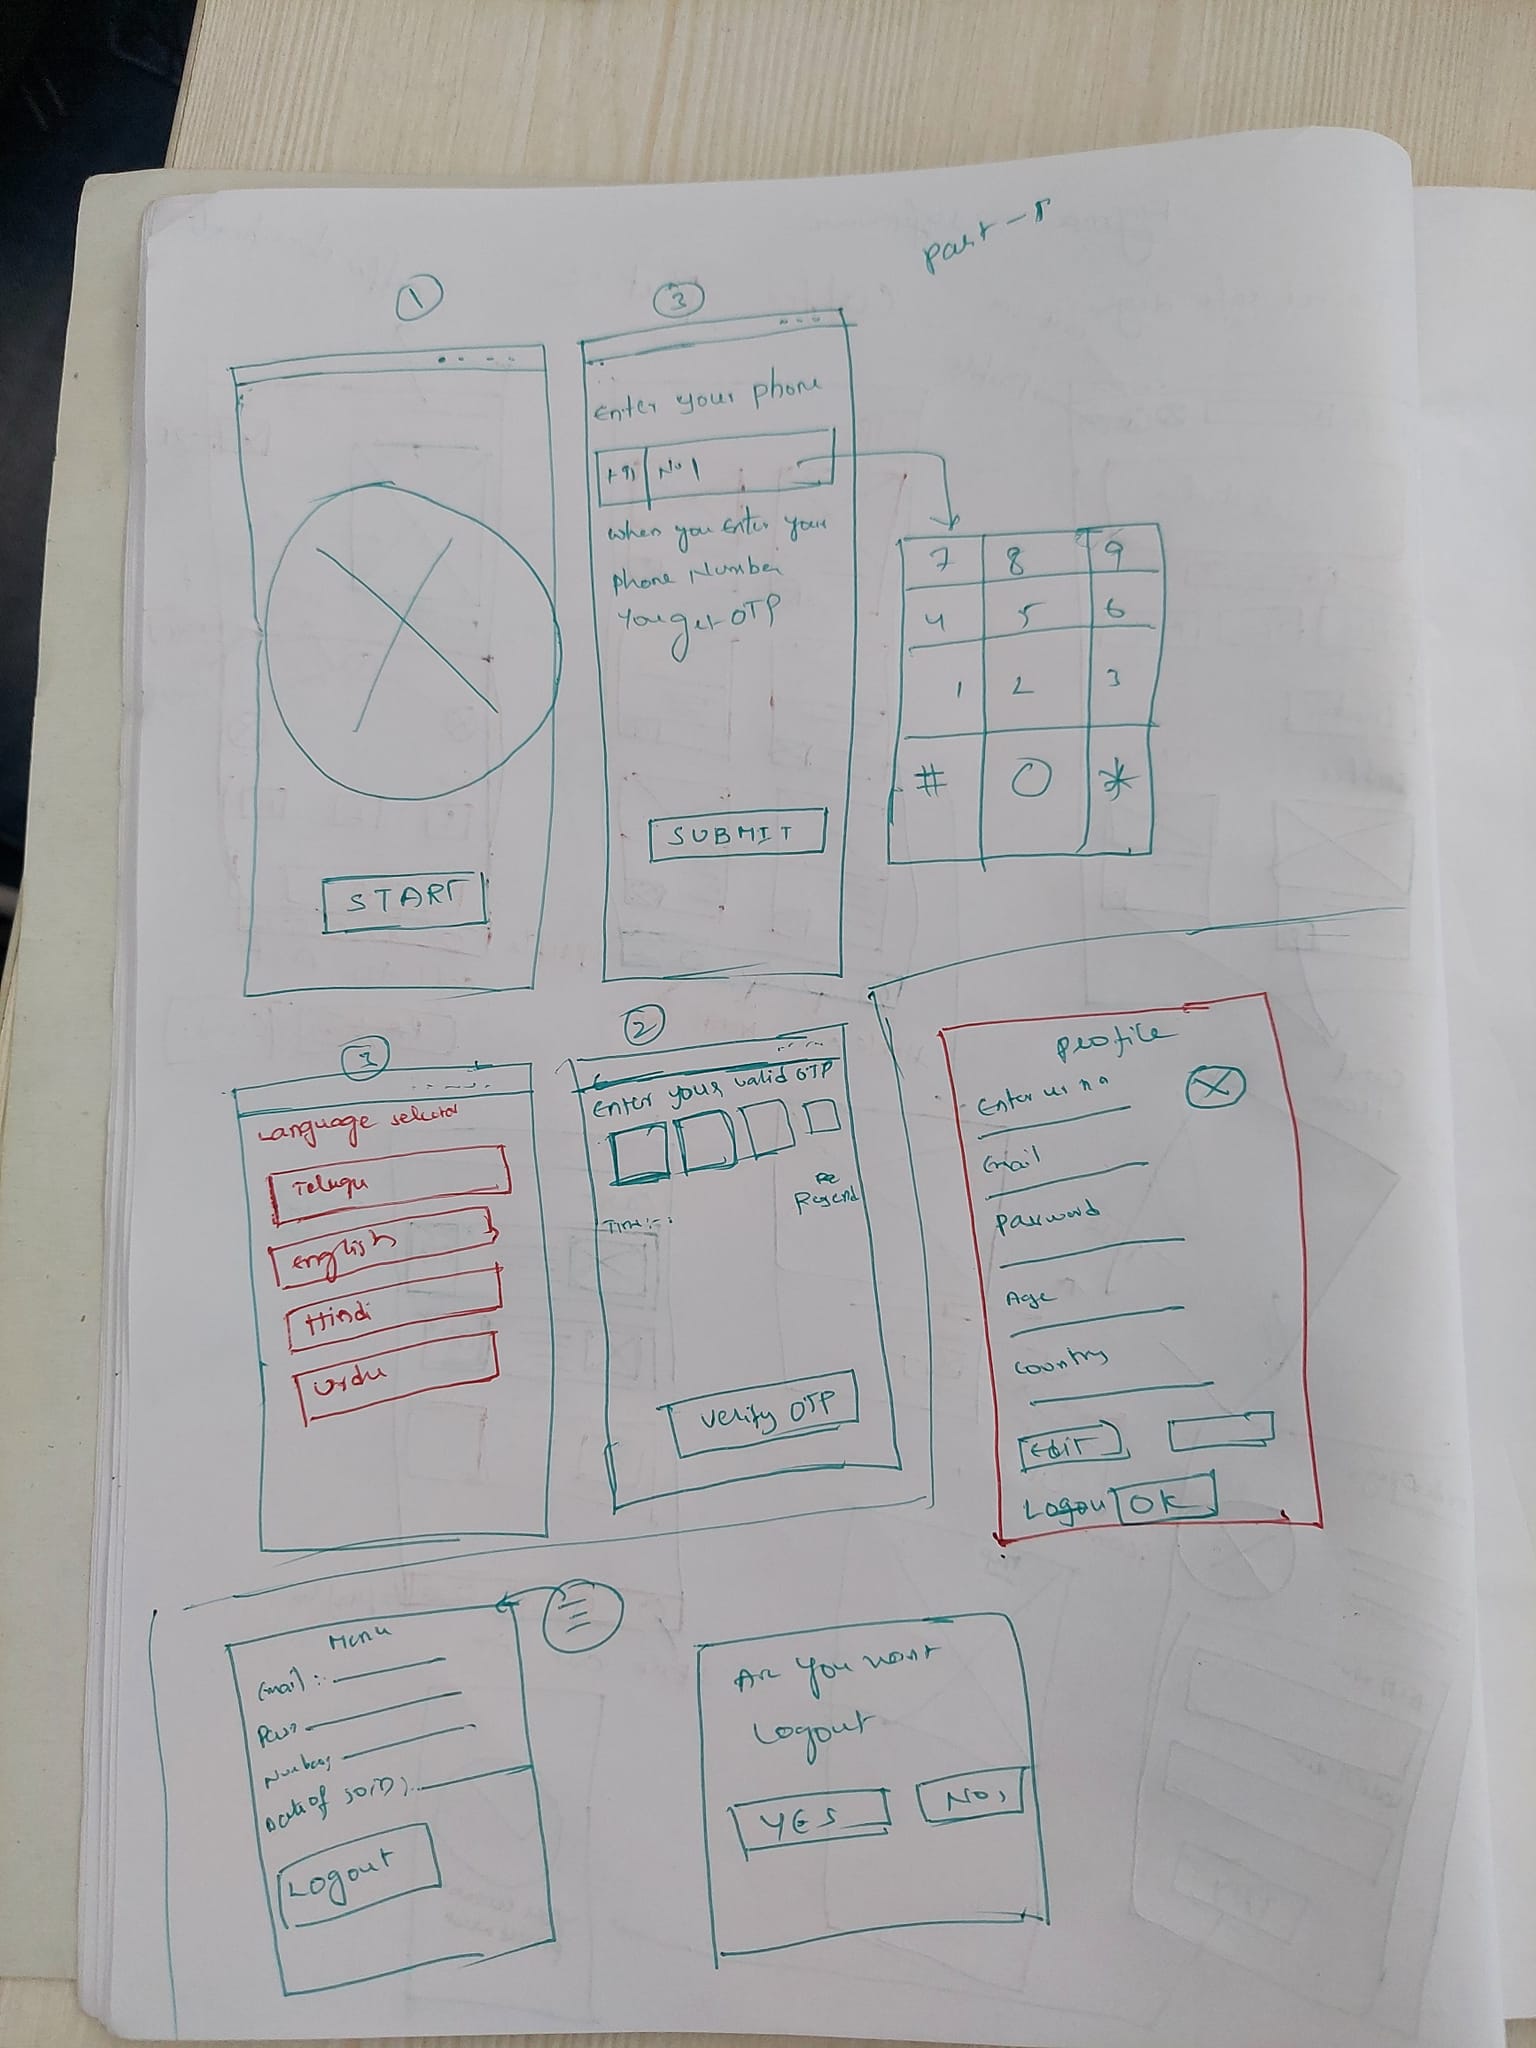 part - 1
1
START
3
Enter your phone
+91 No1
when you Enter your
phone Number
You get OTP
SUBMIT
7 8 9
4 5 6
1 2 3
# 0 *
3
Language selector
Telugu
English
Hindi
Urdu
2
Enter your valid OTP
Re
Resend
Time :- :
Verify OTP
profile
Enter us n a
Email
Password
Age
Country
Edit
Logou OK
Menu
Email :
Pass
Number
Date of
Logout
Are you want
Logout
YES
NO,